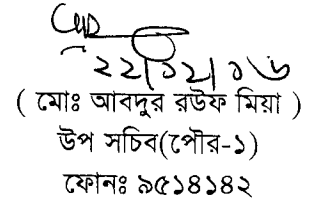 ২২/১২/১৬
( মোঃ আবদুর রউফ মিয়া )
উপ সচিব(পৌর-১)
ফোনঃ ৯৫১৪১৪২